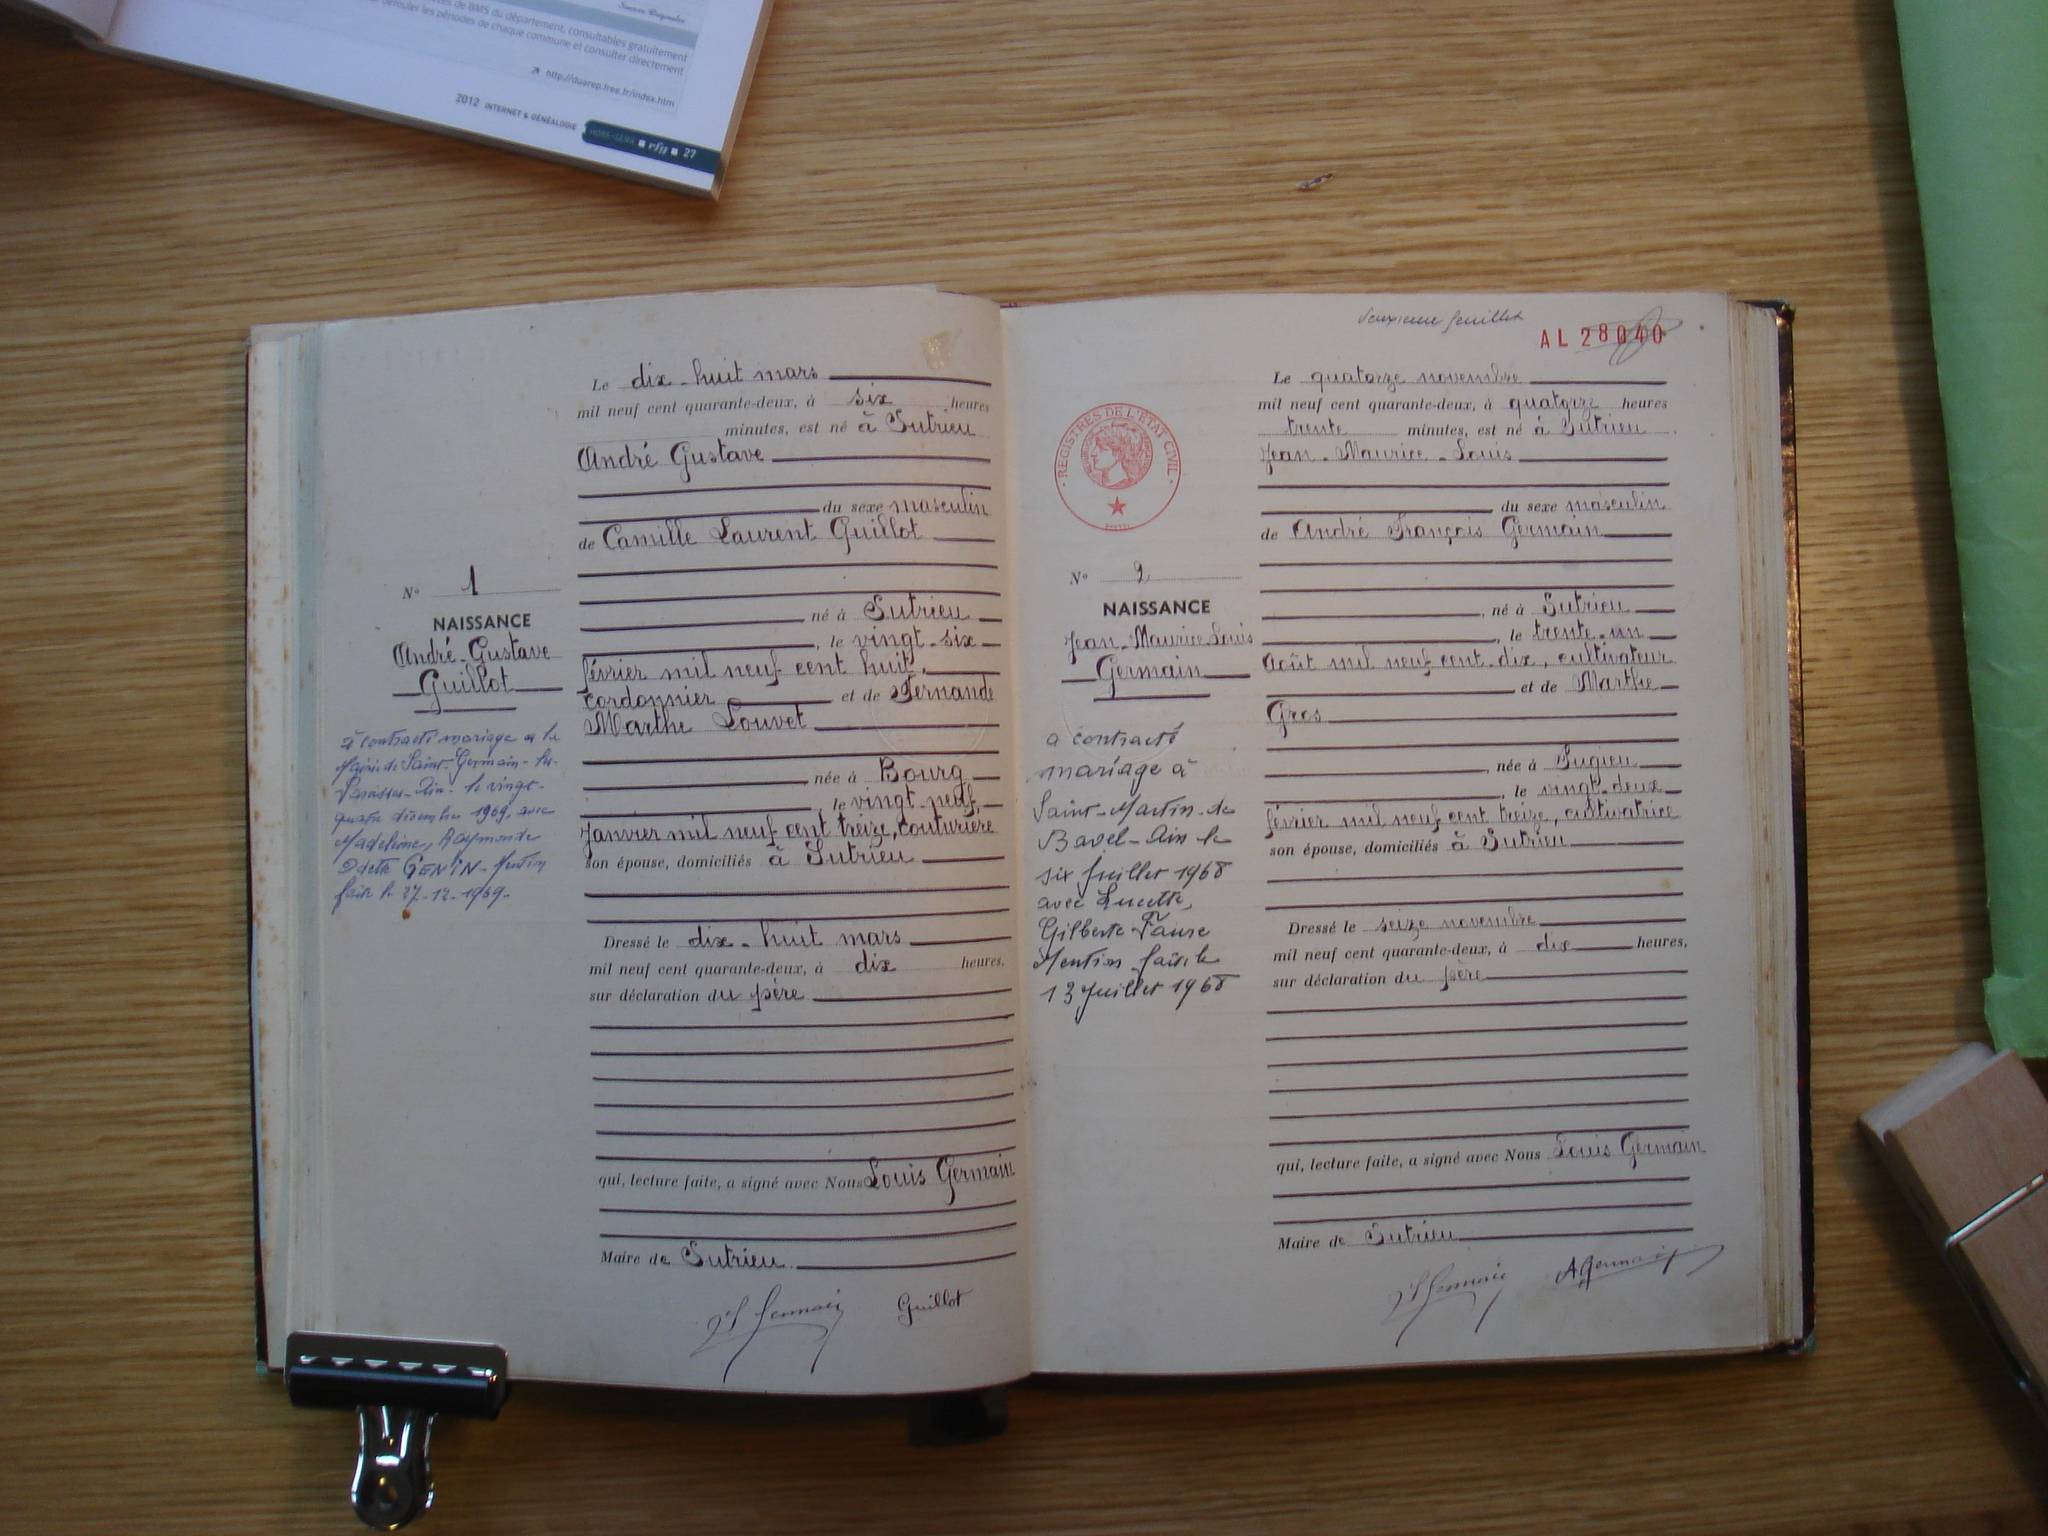 Sources Originales
de BMS du département, consultables gratuitement
dérouler les périodes de chaque commune et consulter directement
http://duarep.free.fr/index.htm
2012 INTERNET & GÉNÉALOGIE
HORS-SÉRIE rfg 27
Le dix-huit mars
mil neuf cent quarante-deux, à six heures
minutes, est né à Sutrieu
André Gustave
du sexe masculin
de Camille Laurent Guillot
né à Sutrieu
, le vingt-six
février mil neuf cent huit,
cordonnier et de Fernande
Marthe Louvet
née à Bourg
, le vingt-neuf
janvier mil neuf cent treize, couturière
son épouse, domiciliés à Sutrieu
Dressé le dix-huit mars
mil neuf cent quarante-deux, à dix heures,
sur déclaration du père
qui, lecture faite, a signé avec Nous Louis Germain
Maire de Sutrieu
Germain Guillot
N° 1
NAISSANCE
André Gustave
Guillot
a contracté mariage à la
Mairie de Saint-Germain-les-
Paroisses-Ain- le vingt-
quatre décembre 1969, avec
Madeleine, Raymonde
Odette GENIN- Mention
faite le 27-12-1969-
deuxième feuillet
AL 28040
REGISTRES DE L'ETAT CIVIL
N° 2
NAISSANCE
Jean-Maurice Louis
Germain
a contracté
mariage à
Saint-Martin-de
Bavel-Ain le
six juillet 1968
avec Lucette,
Gilberte Faure
Mention faite le
13 Juillet 1968
Le quatorze novembre
mil neuf cent quarante-deux, à quatorze heures
trente minutes, est né à Sutrieu
Jean-Maurice-Louis
du sexe masculin
de André François Germain
, né à Sutrieu
, le trente-un
Août mil neuf cent-dix, cultivateur
et de Marthe
Gros
, née à Sugieu
, le vingt-deux
février mil neuf cent treize, cultivatrice
son épouse, domiciliés à Sutrieu
Dressé le seize novembre
mil neuf cent quarante-deux, à dix heures,
sur déclaration du père
qui, lecture faite, a signé avec Nous Louis Germain
Maire de Sutrieu
Germain AGermain